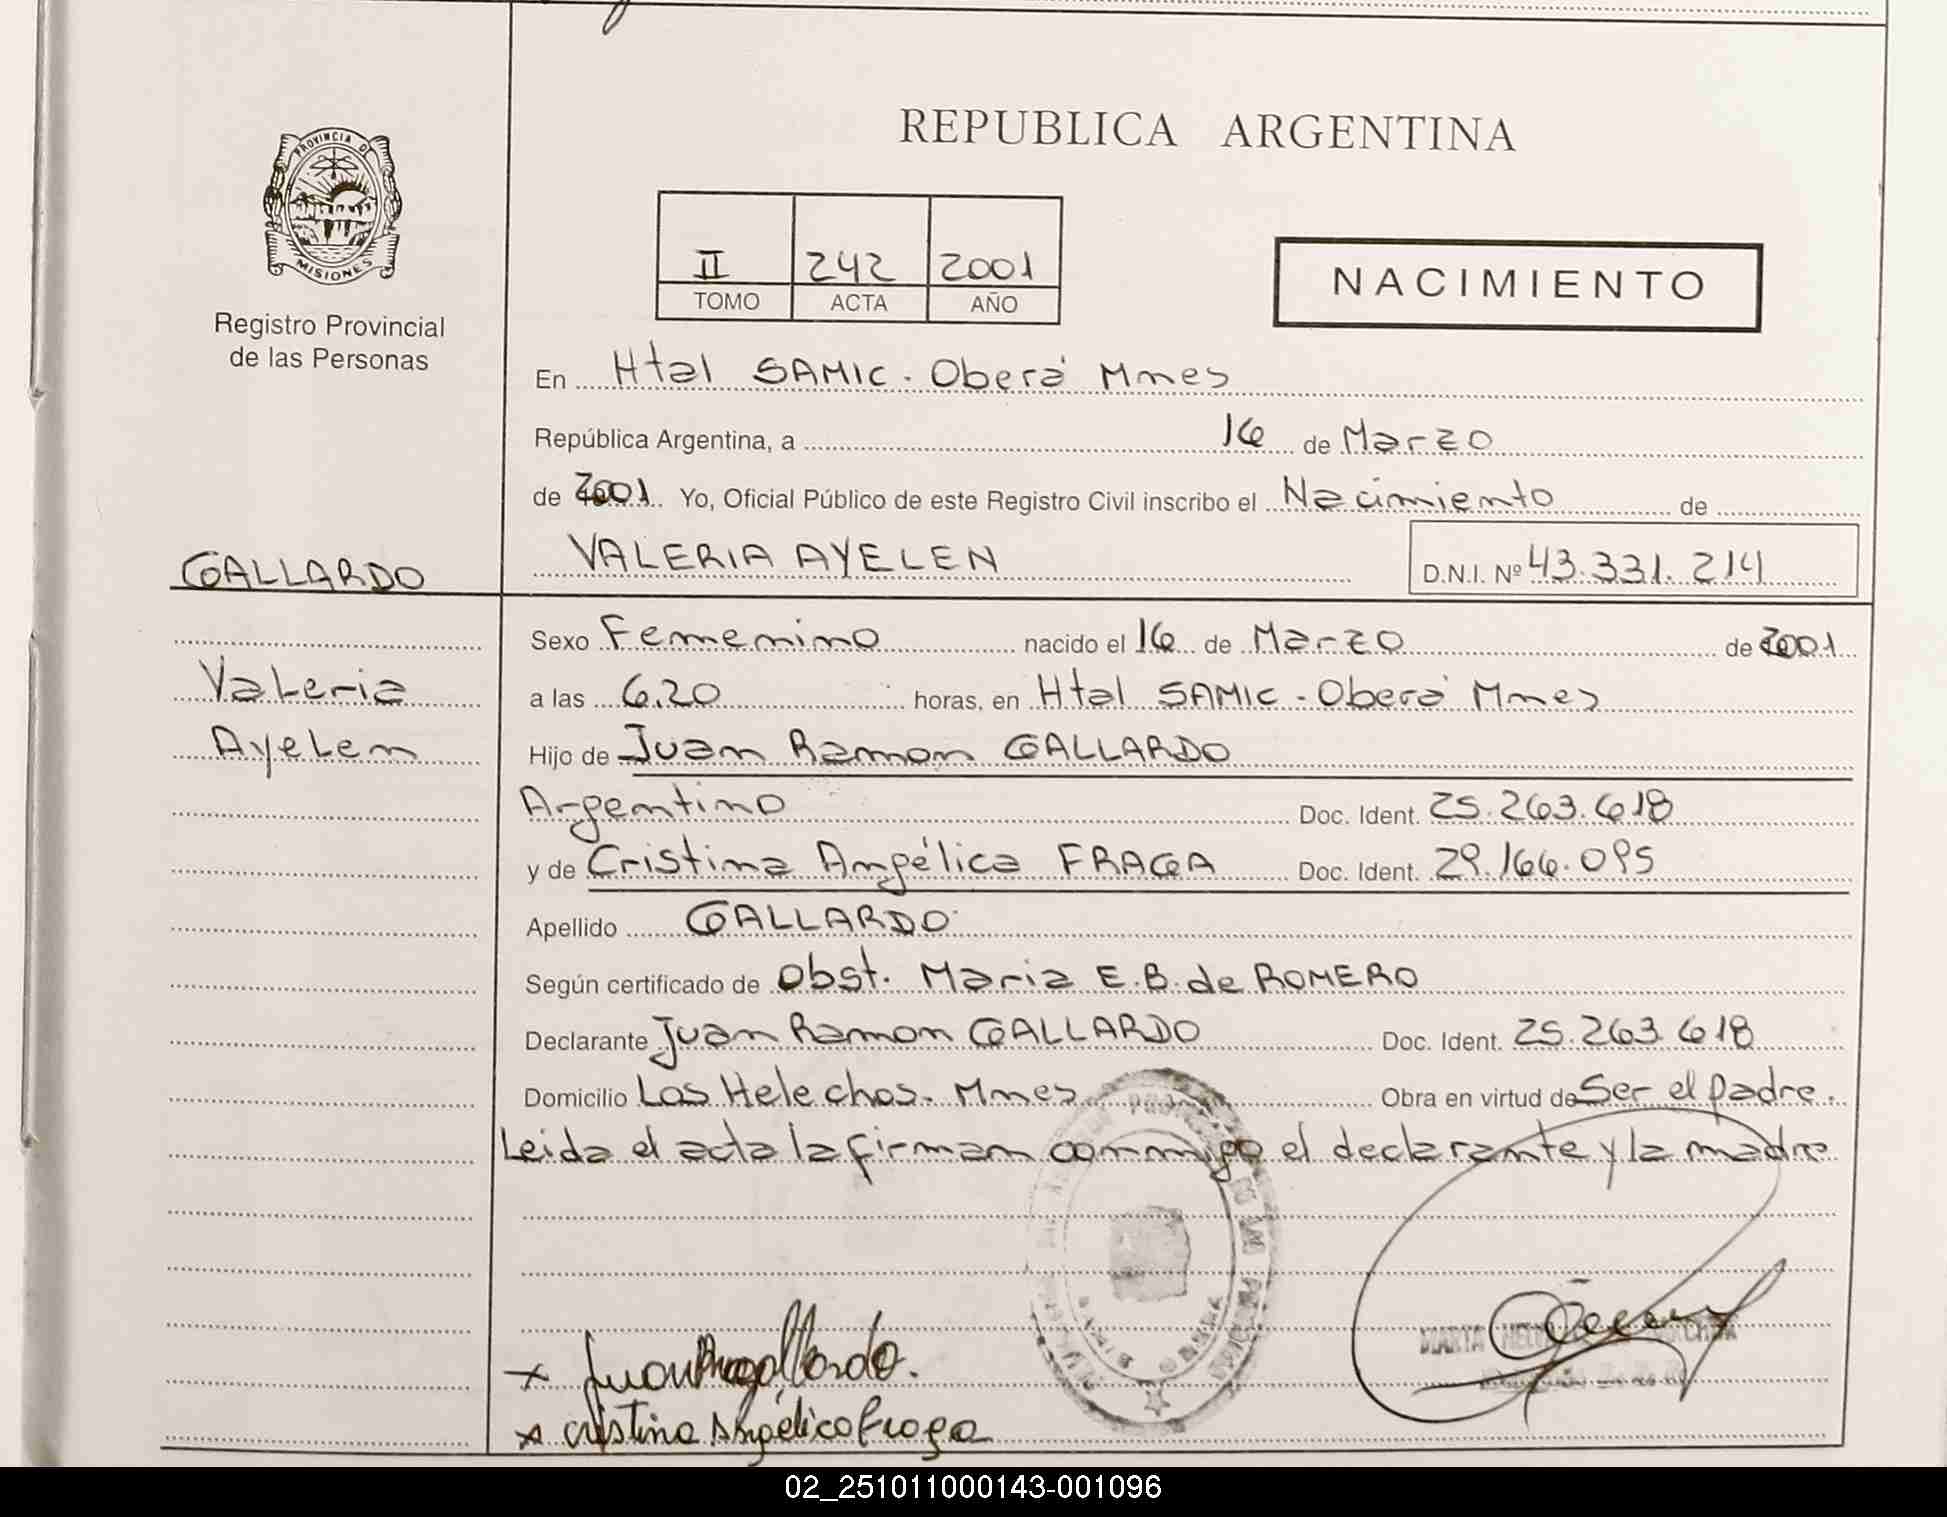 REPUBLICA ARGENTINA
PROVINCIA DE
MISIONES
Registro Provincial
de las Personas
II 242 2001
TOMO ACTA AÑO
NACIMIENTO
En Htal SAMIC - Oberá Mnes
República Argentina, a 16 de Marzo
de 2001 Yo, Oficial Público de este Registro Civil inscribo el Nacimiento de
GALLARDO VALERIA AYELEN D.N.I. Nº 43.331.214
Sexo Femenino nacido el 16 de Marzo de 2001
Valeria a las 6.20 horas, en Htal SAMIC - Oberá Mnes
Ayelen Hijo de Juan Ramon GALLARDO
Argentino Doc. Ident. 25.263.618
y de Cristina Angélica FRAGA Doc. Ident. 29.166.095
Apellido GALLARDO
Según certificado de Obst. Maria E.B. de ROMERO
Declarante Juan Ramon GALLARDO Doc. Ident. 25.263.618
Domicilio Los Helechos. Mnes Obra en virtud de Ser el padre.
Leida el acta la firman conmigo el declarante y la madre
MARTA
Juan R gallardo.
cristina Angélica fraga
02_251011000143-001096